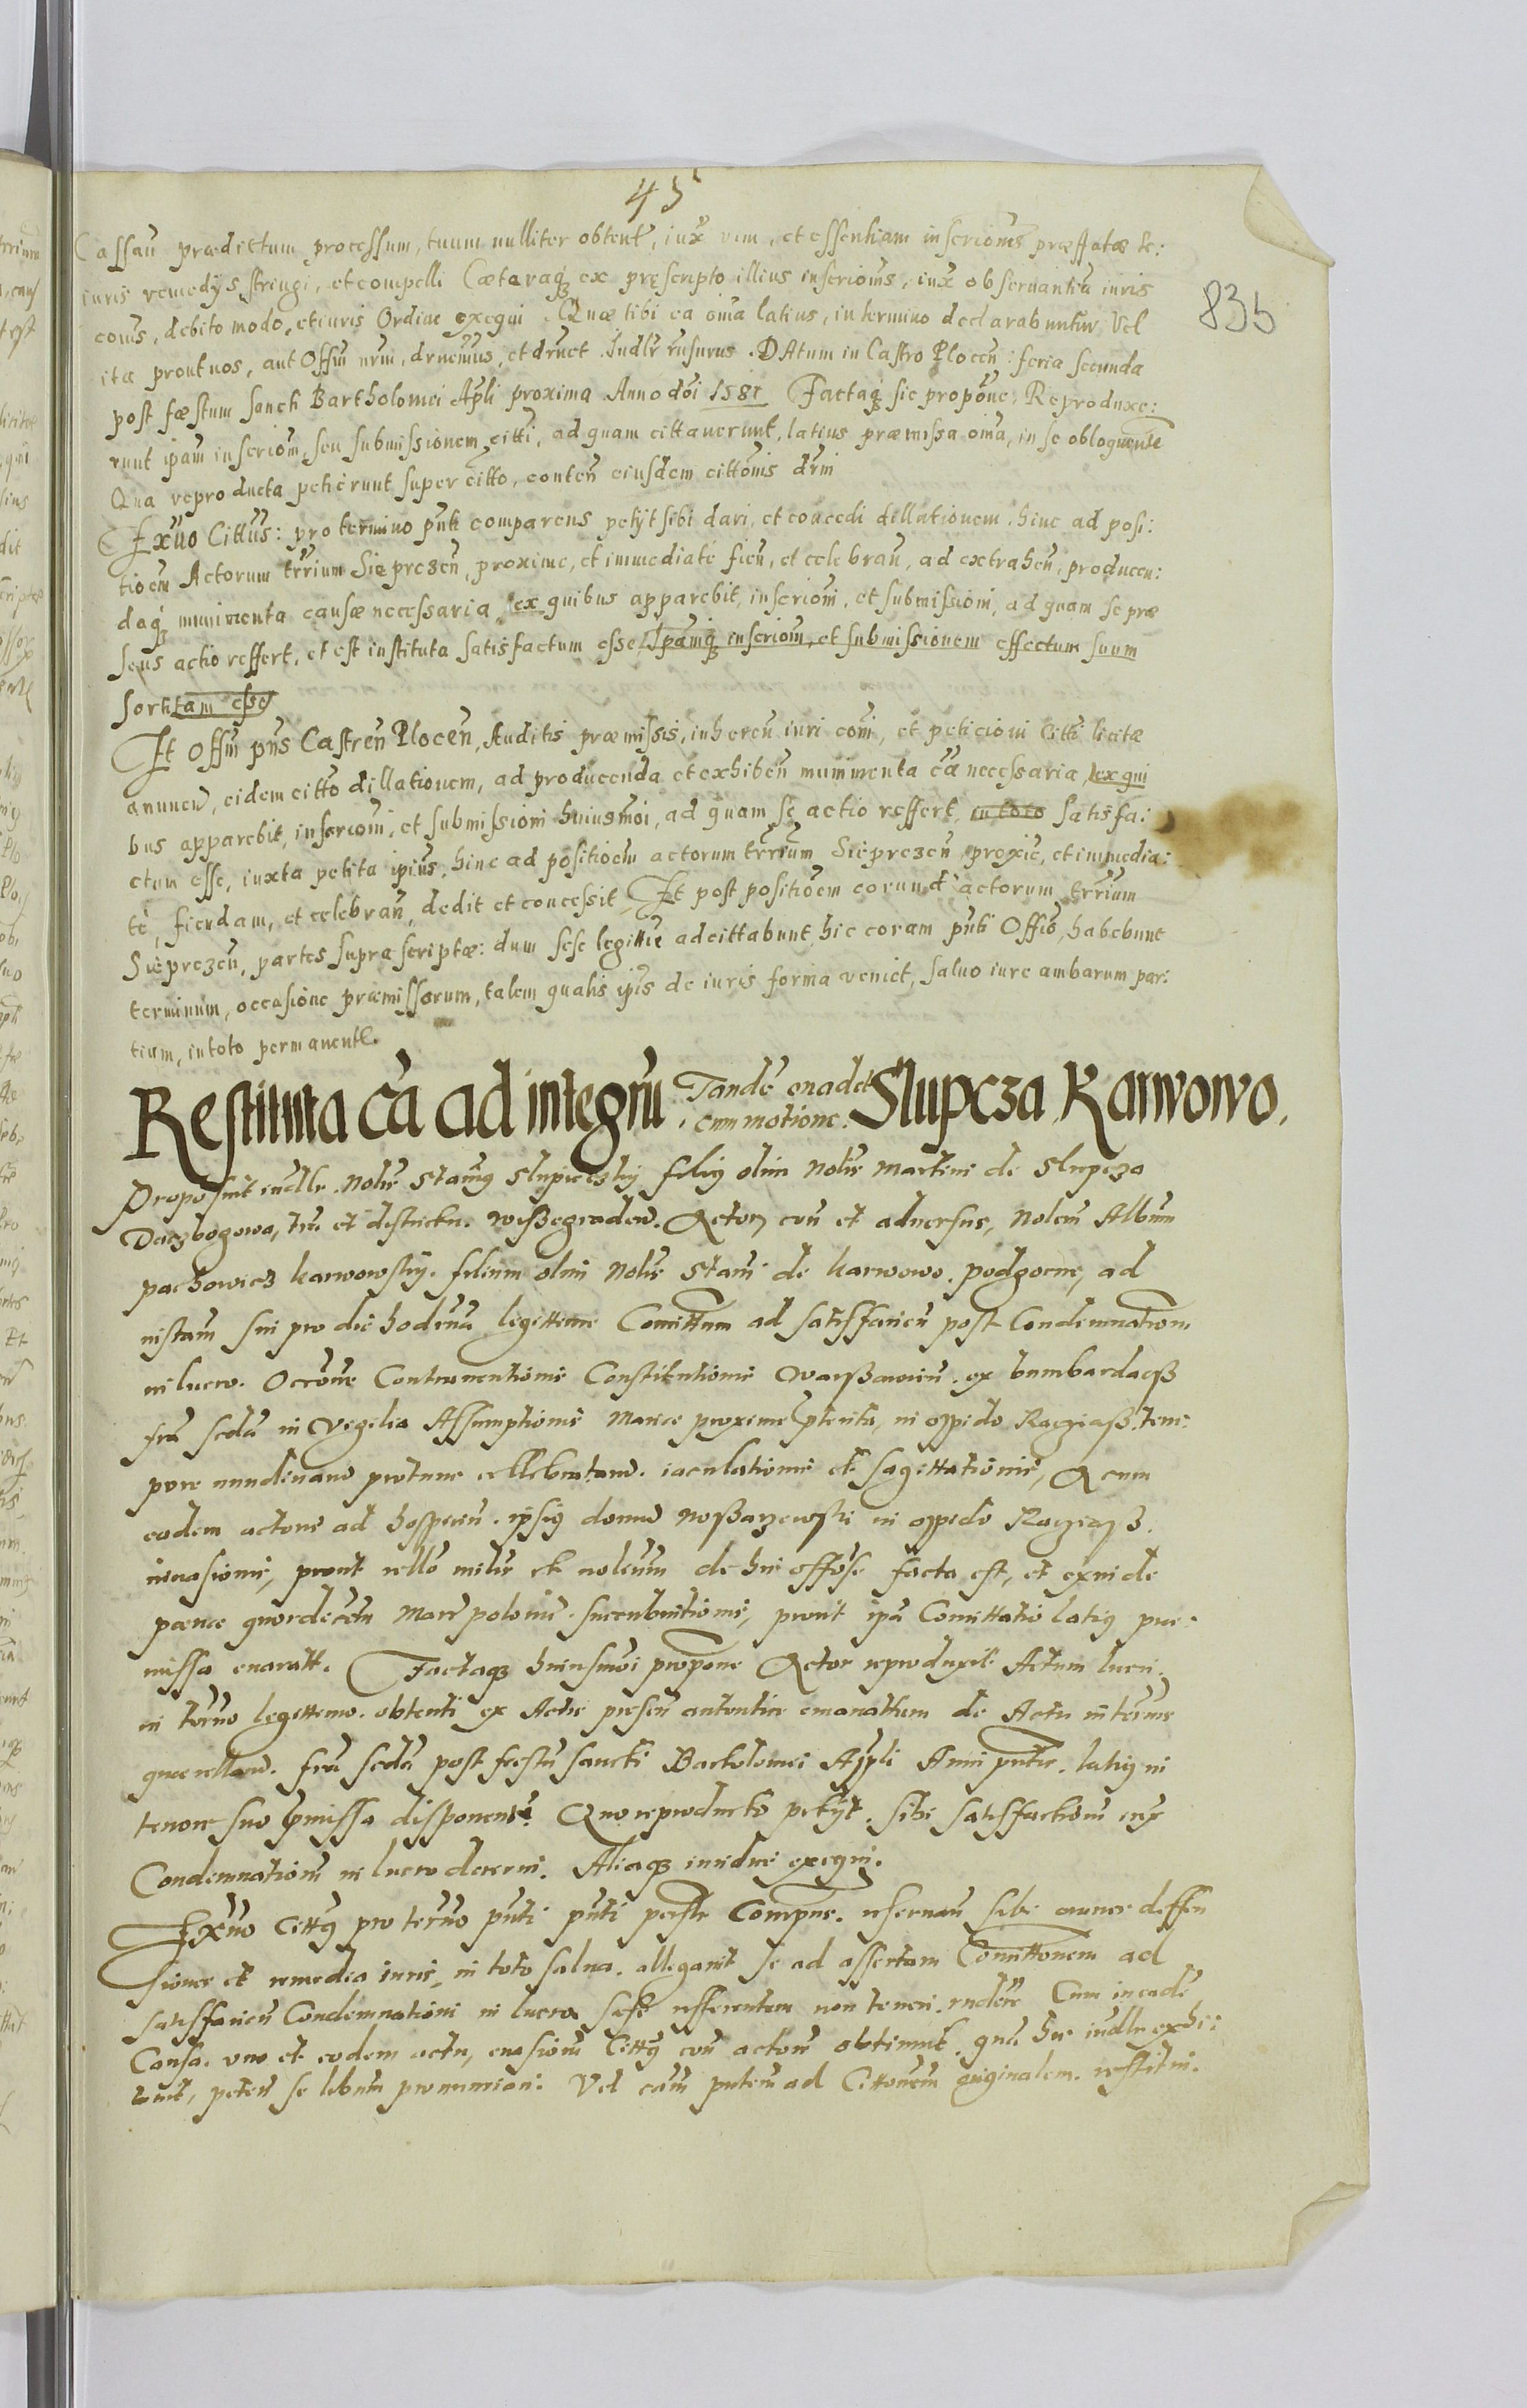 45
835
Cassan prædictum processum, tuum nulliter obtent, iux vim, et essentiam inscrioms præffatæ te:
iuris remedijs stringi, et compelli Cætaraq; ex prescripto illius inscrioms, iux observantia iuris
coms, debito modo, et iuris Ordine exequi. Quæ tibi ea oia latius, in termino declarabuntur Vel
itæ prout nos, aut Offm nrm, drnemus, et drnet Indlr rnsurus. DAtum in Castro Plocen: feria secunda
post fæstum sancti Bartholomei Apli proxima Anno doi 1581 Factaq; sic propone, Reproduxe:
runt ipam inscriom, seu submissionem citti, ad quam cittaverunt, latius præmissa oia, in se obloquente
Qua reproducta petierunt super citto, conten eiusdem cittonis drni
Ex uo Cittus: pro termino pnti comparens petijt sibi dari, et concedi dillationem, hinc ad posi:
tioem Actorum trrium Sieprezen, proxime, et immediate fien, et celebran, ad extrahen, producen:
daq; munimenta causæ necessaria, ex quibus apparebit, inscrioni, et submissioni, ad quam se præ
sens actio reffert, et est instituta satisfactum esse Ipamq; inscriom, et submissionem effectum suum
sortitam esse
Et Offm pns Castren Plocen, Auditis præmissis, inheren iuri comi, et peticioni Citti licitæ
annuen, eidem citto dillationem, ad producenda et exhiben munimenta cæ necessaria, ex qui
bus apparebit, inscrioni, et submissioni huiusmoi, ad quam se actio reffert, in toto satisfa:
ctum esse, iuxta petita ipius, hinc ad positioem actorum trrium Sieprezen proxie, et immedia:
te, fiendam, et celebran, dedit et concessit Et post positioem eorund actorum trrium
Sieprezen, partes supra scriptæ: dum sese legittie adcittabunt, hic coram pnti Offio, habebunt
terminum, occasione præmissorum, talem qualis ipis de iuris forma veniet, salvo iure ambarum par:
tium, in toto permanente.
Restituta cã ad integrũ Tande onadet Slupcza Karwowo.
cum motione.
Proposuit iudlr Nolis Stans Slupieczky filiq olim Nolis Martini de Slupcza
Daczbogowa, tre et districtu Wißegraden. Actor, con et adversus, Nolem Album
pachowicz karwowsky. filium olim Nolis Stani de karwowo podgorne, ad
instam sui pro die hodierna legittime Comittum ad satisfacien post Condemnationem
in lucro. Occone Contraventionis Constitutionis Warßavien. ex bumbardaeß
fra scda in Vigilia Assumptionis Mariæ proxime pterita, in oppido Raczaß. tem:
pore nundinaru protunc cellebratarum. iaculationis et sagittationis, Qcum
eodem actore ad hospiciu. ipsiq domu Noßarzewski in oppido Raczaß.
invasionis, prout rello milis et nolium de hic offose facta est, et exinde
pænæ quordecem Marc polonic. succubuitionis, prout ipa Comittatio latiq præ:
missa enarratt. Factaq; huiusmoi propone Actor reproduxit Actum lucri.
in termo legittimo. obtenti ex Actis presen autentice emanatum de Actu in termis
querellaru. fra scda post festu sancti Bartolomei Appli Anni pntis. latiq in
tenore suo pmissa disponente. Quo reproducto petijt. sibi satisfactiom iux
Condemnationem in lucro decerni. Aliaq; iuridice exequi.
Ex uo Cittq pro termo pnti pnti psonlr Comprns. reservan sibi omnes deffen
siones et remedia iuris, in toto salva. allegavit se ad assertam Comittonem ad
satisfacien Condemnationi in lucro sese refferentem non teneri rndere Cum in eade
Causa. uno et eodem actu, evasionem Cittq con actorem obtinuit. qua hic iudlr exhi:
buit, peten se liberum pronunciari. Vel eam pntem ad Cittonem originalem. restitui.